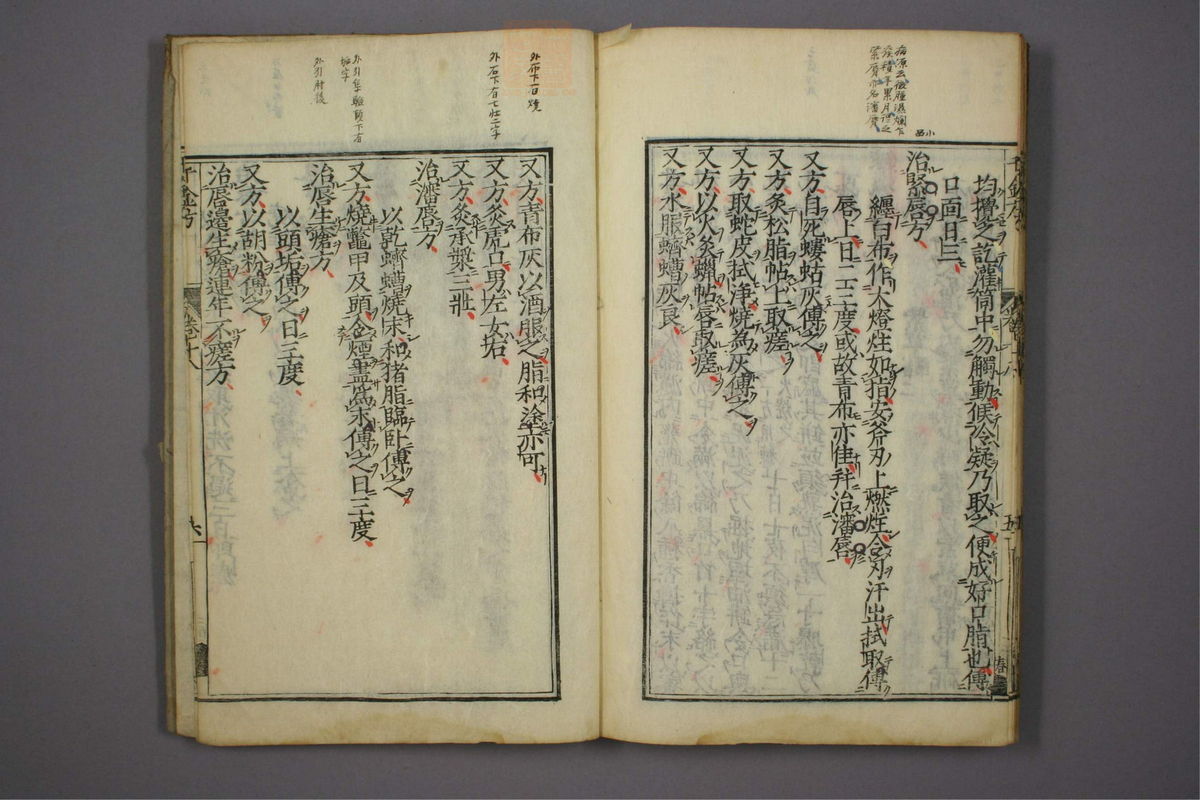 均攪之訖灌筒中勿觸動候冷凝乃取之便成好口脂也傅
口面日三
治緊唇方
纏白布作大燈炷如指安斧刃上燃炷令刃汗出拭取傅
唇上日二三度或故青布亦佳并治瀋唇
又方自死螻蛄灰傅之
又方炙松脂帖上取瘥
又方取蛇皮拭淨燒為灰傅之
又方以火炙蠟帖唇取瘥
又方水服蠐螬灰良
又方青布灰以酒服之脂和塗亦可
又方灸虎口男左女右
又方灸承漿三壯
治瀋唇方
以乾蠐螬燒末和猪脂臨卧傅之
又方燒鼈甲及頭令煙盡為末傅之日三度
治唇生瘡方
以頭垢傅之日三度
又方以胡粉傅之
治唇邊生瘡連年不瘥方
外布下一曰燒
外右下有七壯二字
外引肘後
千金方
卷十八
六
五
春